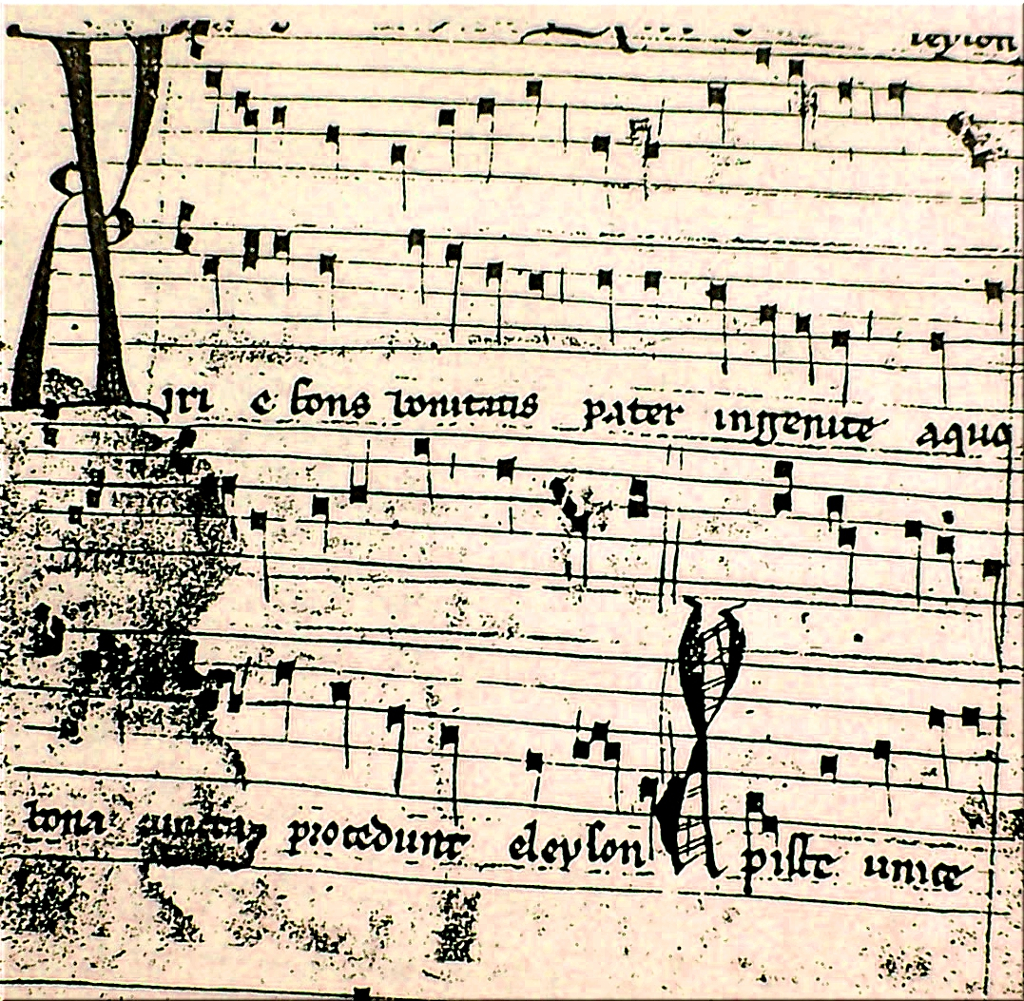 leyson
Kiri e fons bonitatis pater ingenite a quo
bona cuncta procedunt eleyson Xpiste unice